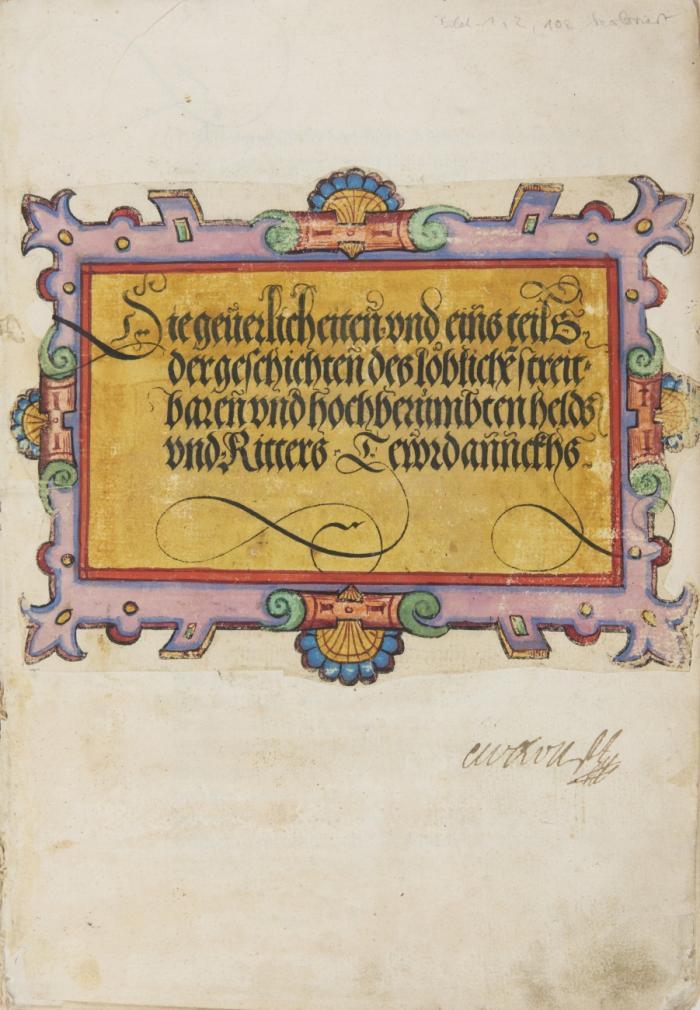 Die geüerlicheiten̄ vnd eins teils
der geschichten̄ des loͤblichē streit-
baren̄ vnd hochberümbten helds
vnd Ritters Tewrdan̄n̄ckhs